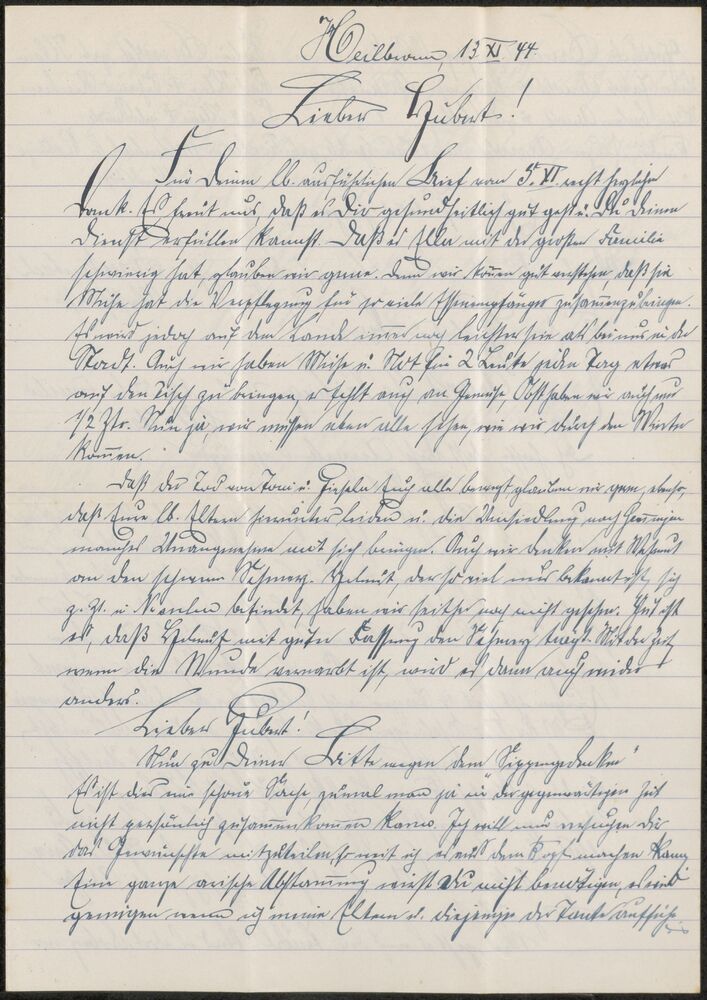 Heilbronn, 13.XI.44.
Lieber Hubert!
Für Deinen lb. ausführlichen Brief vom 5.XI. recht herzlichen
Dank. Es freut uns, daß es Dir gesundheitlich gut geht u. Du Deinen
Dienst erfüllen kannst. Daß es Ella mit der großen Familie
schwierig hat, glauben wir gerne. Denn wir können gut verstehen, daß sie
Mühe hat die Verpflegung für so viele Essenempfänger zusammenzubringen.
Es wird jedoch auf dem Lande immer noch leichter sein als bei uns in der
Stadt. Auch wir haben Mühe u. Not für 2 Leute jeden Tag etwas
auf den Tisch zu bringen, es fehlt auch an Gemüse, Obst haben wir auch nur
1/2 Ztr. Nun ja, wir müssen eben alle sehen, wie wir durch den Winter
kommen.
Daß der Tod von Toni u. Euch alle bewegt glauben wir gern, ebenso,
daß Eure lb. Eltern hierunter leiden u. die Umsiedlung nach
manches Unangenehme mit sich bringen. Auch wir denken mit Wehmut
an den schweren Schmerz. Helmut der so viel mir bekannt ist, sich
z. Zt. in befindet, haben wir seither noch nicht gesehen. Gut ist
es, daß Helmut mit guter Fassung den Schmerz trägt. Mit der Zeit,
wenn die Wunde vernarbt ist, wird es dann auch wieder
anders.
Lieber Hubert!
Nun zu Deiner Bitte wegen dem "Sippengedenken"
Es ist dies eine schöne Sache, zumal man ja in der gegenwärtigen Zeit
nicht persönlich zusammenkommen kann. Ich will nun versuchen Dir
das Gewünschte mitzuteilen, so weit ich es aus dem Kopf machen kann
Eine ganze arische Abstammung wirst Du nicht benötigen, es wird
genügen wenn ich meine Eltern u. diejenige der Tante aufführe.